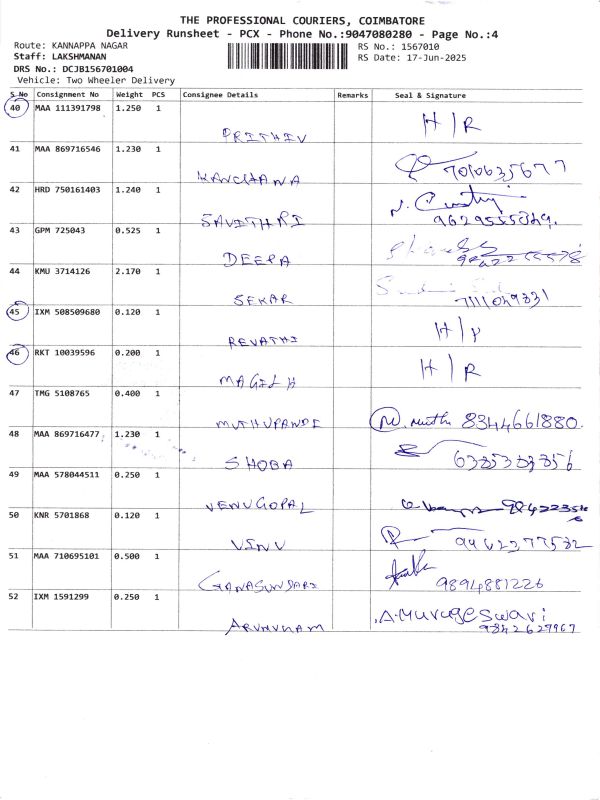 THE PROFESSIONAL COURIERS, COIMBATORE
Delivery Runsheet - PCX - Phone No.:9047080280 - Page No.:4
Route: KANNAPPA NAGAR
RS No.: 1567010
Staff: LAKSHMANAN
RS Date: 17-Jun-2025
DRS No.: DCJB156701004
Vehicle: Two Wheeler Delivery
S No Consignment No Weight PCS Consignee Details Remarks Seal & Signature
40 MAA 111391798 1.250 1
PRITHIV H/R
41 MAA 869716546 1.230 1
KANCHANA 7010635677
42 HRD 750161403 1.240 1
SAVITHRI
43 GPM 725043 0.525 1
DEEPA
44 KMU 3714126 2.170 1
SEKAR
45 IXM 508509680 0.120 1
REVATHI H/R
46 RKT 10039596 0.200 1
MAGILH H/R
47 TMG 5108765 0.400 1
MUTHUPANDI M. Muthu 8344661880.
48 MAA 869716477 1.230 1
SHOBA 6385383856
49 MAA 578044511 0.250 1
VENUGOPAL
50 KNR 5701868 0.120 1
VINU
51 MAA 710695101 0.500 1
GANASUNDARI 9894881226
52 IXM 1591299 0.250 1
ARUMUGAM A.Murugeswari
9842627967